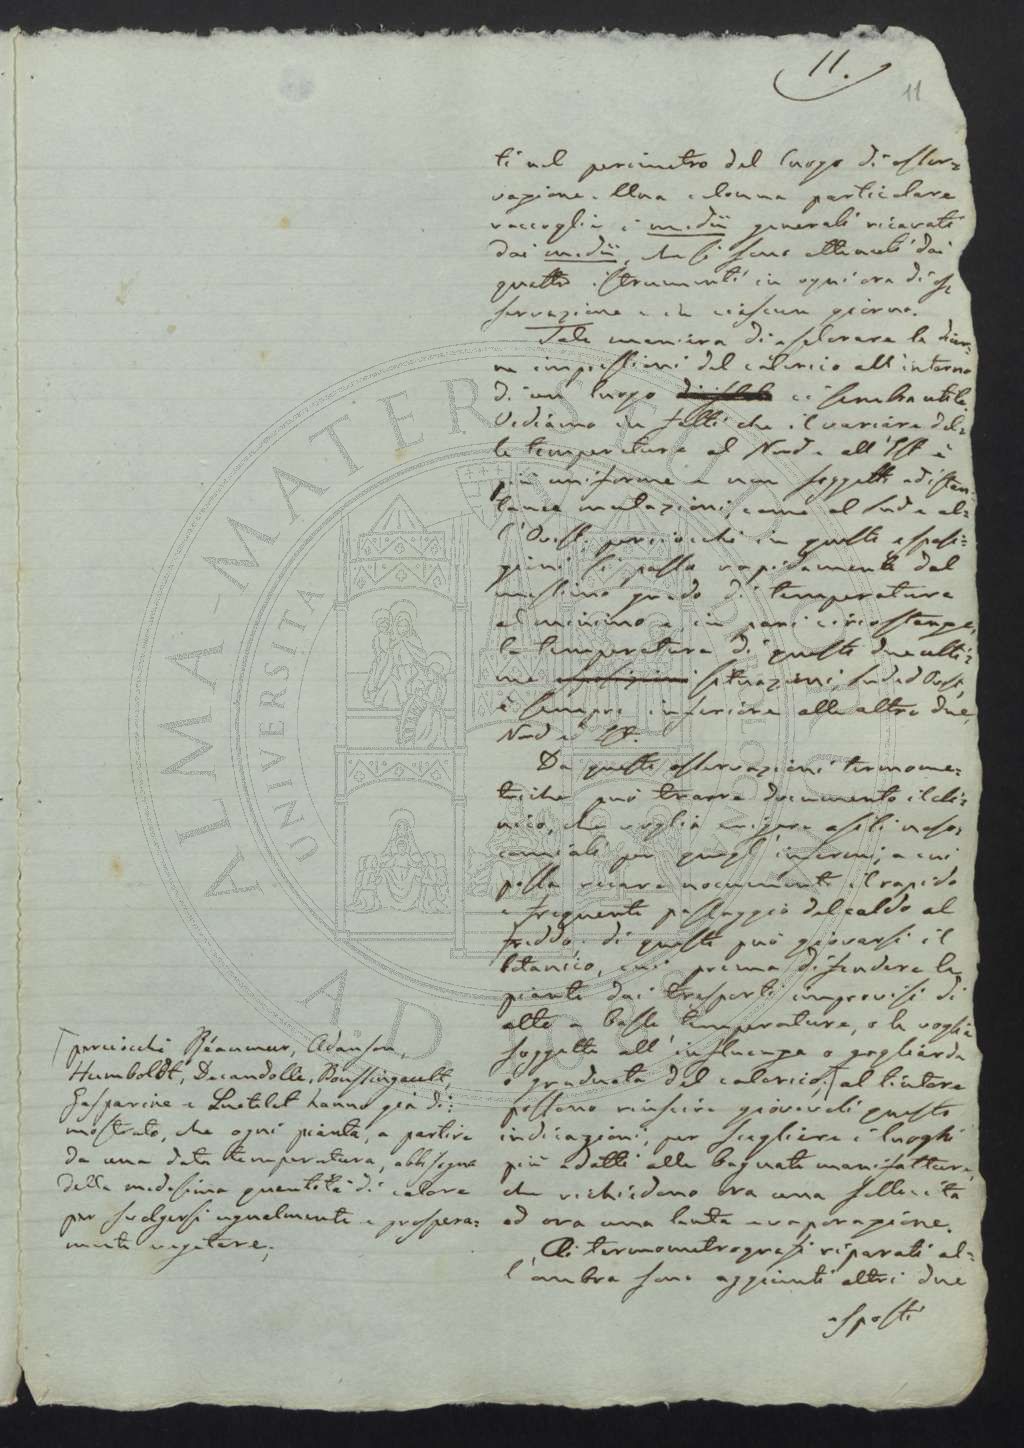 11.
11
ti nel perimetro del luogo di osser=
vazione. Una colonna particolare
raccoglie i medii generali ricavati
dai medii, che si sono ottenuti dai
quattro istrumenti in ogni ora di os
servazione e in ciascun giorno.
Tale maniera di esplorare le diur=
ne impressioni del calorico all'interno
di un luogo ci sembra utile.
Vediamo in fatti che il variare del=
le temperature al Nord e all'Est è
più uniforme e non soggetto ad istan=
tanee mutazioni, come al Sud e al=
l'Ovest; perciocchè in queste esposi=
zioni si passa rapidamente dal
massimo grado di temperatura
al minimo e, in pari circostanze,
la temperatura di queste due ulti=
me esposizioni situazioni, Sud ed Ovest,
è sempre inferiore alle altre due,
Nord ed Est.
Da queste osservazioni termome=
triche può trarre documento il cli=
nico, che voglia erigere asili noso=
comiali per quegl'infermi, a cui
possa recare nocumento il rapido
e frequente passaggio dal caldo al
freddo; di queste può giovarsi il
botanico, cui prema difendere le
piante dai trasporti improvisi di
alte a basse temperature, o le voglia
soggette all'influenza o gagliarda
o graduata del calorico; al tintore
possono riuscire giovevoli queste
indicazioni, per scegliere i luoghi
più adatti alle bagnate manifatture,
che richiedono ora una sollecita
ed ora una lenta evaporazione.
Ai termometrografi riparati al=
l'ombra sono aggiunti altri due
esposti
perciocchè Réaumur, Adanson,
Humboldt, Decandolle, Boussingault,
Gasparin e Quetelet hanno già di=
mostrato, che ogni pianta, a partire
da una data temperatura, abbisogna
della medesima quantità di calore
per svolgersi ugualmente e prospera=
mente vegetare;
ALMA MATER STUDIORUM
UNIVERSITÀ
A.D. 1088